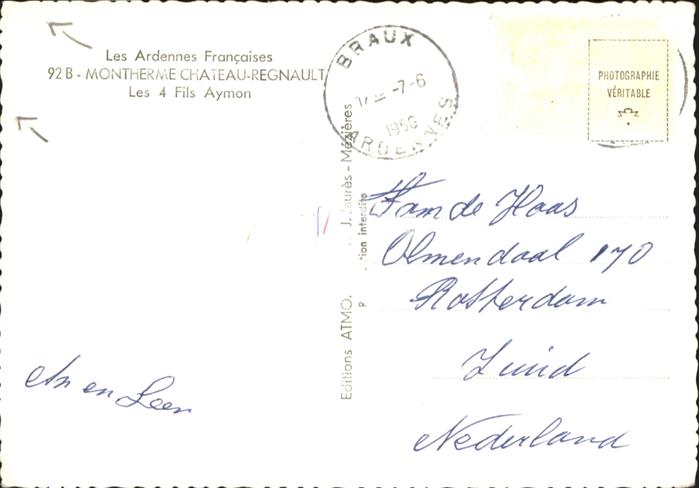 Les Ardennes Françaises
92 B - MONTHERME CHATEAU-REGNAULT
Les 4 Fils Aymon
BRAUX
-7-6
1956
ARDENNES
PHOTOGRAPHIE
VÉRITABLE
Editions ATMO, J. Jaurès - Mézières
tion interdite
Fam de Haas
Olmendaal 170
Rotterdam
Zuid
Nederland
An en Leen